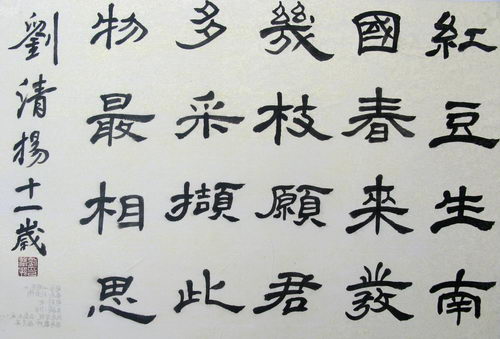 紅豆生南
國春来發
幾枝願君
多采擷此
物最相思
劉清揚十一歲